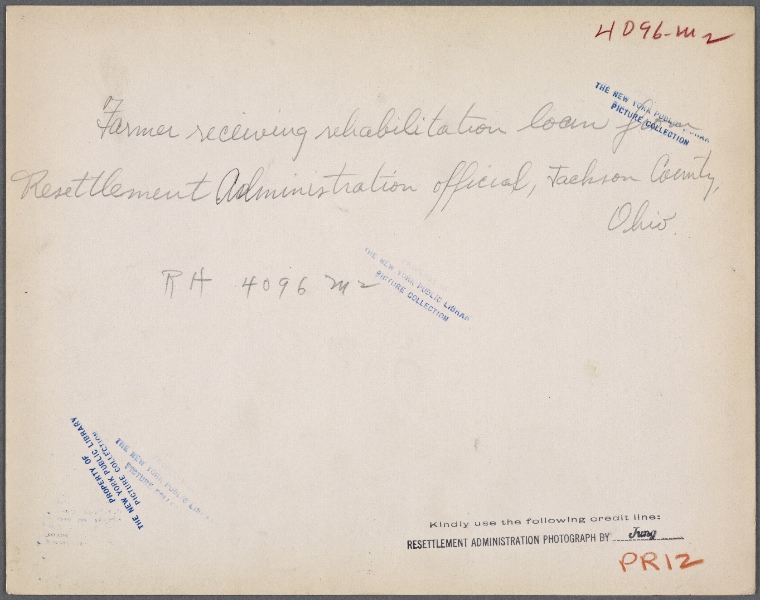 4096-M2
Farmer receiving rehabilitation loan from
Resettlement Administration official, Jackson County,
Ohio.
THE NEW YORK PUBLIC LIBRARY
PICTURE COLLECTION
RH 4096 M2
THE NEW YORK PUBLIC LIBRARY
PICTURE COLLECTION
PROPERTY OF
THE NEW YORK PUBLIC LIBRARY
PICTURE COLLECTION
THE NEW YORK PUBLIC LIBR
PICTURE COLLE
Kindly use the following credit line:
RESETTLEMENT ADMINISTRATION PHOTOGRAPH BY Jung
PR12